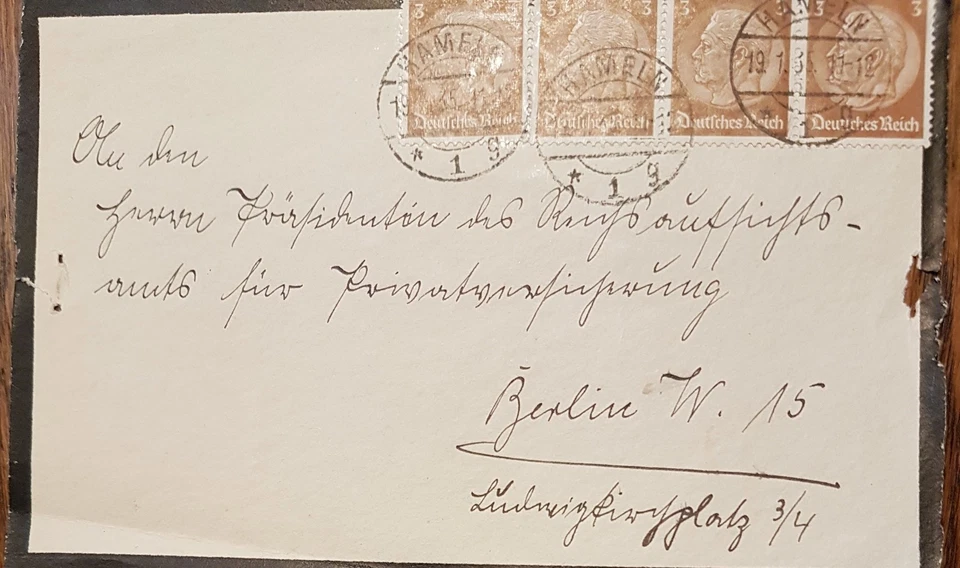 3 3 3 3 3
Deutsches Reich Deutsches Reich Deutsches Reich Deutsches Reich
HAMELN HAMELN HAMELN
19.1.35. 11-12
* 1 g * 1 g
An den
Herrn Präsidenten des Reichsaufsichts-
amts für Privatversicherung
Berlin W. 15
Ludwigkirchplatz 3/4